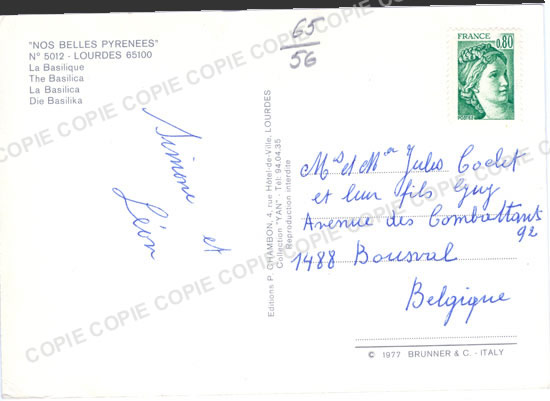 "NOS BELLES PYRENEES"
N° 5012 - LOURDES 65100
La Basilique
The Basilica
La Basilica
Die Basilika
65
56
FRANCE
0,80
Simone et
Léon
Editions P. CHAMBON, 4, rue Hôtel-de-Ville, LOURDES
Collection "YAN" - Tél. 94.04.35
Reproduction interdite
Md et Mer Jules Coclet
et leur fils Guy
Avenue des Combattants
92
1488 Bousval
Belgique
© 1977 BRUNNER & C. - ITALY
COPIE COPIE COPIE COPIE COPIE COPIE
COPIE COPIE COPIE COPIE COPIE COPIE
COPIE COPIE COPIE COPIE COPIE COPIE